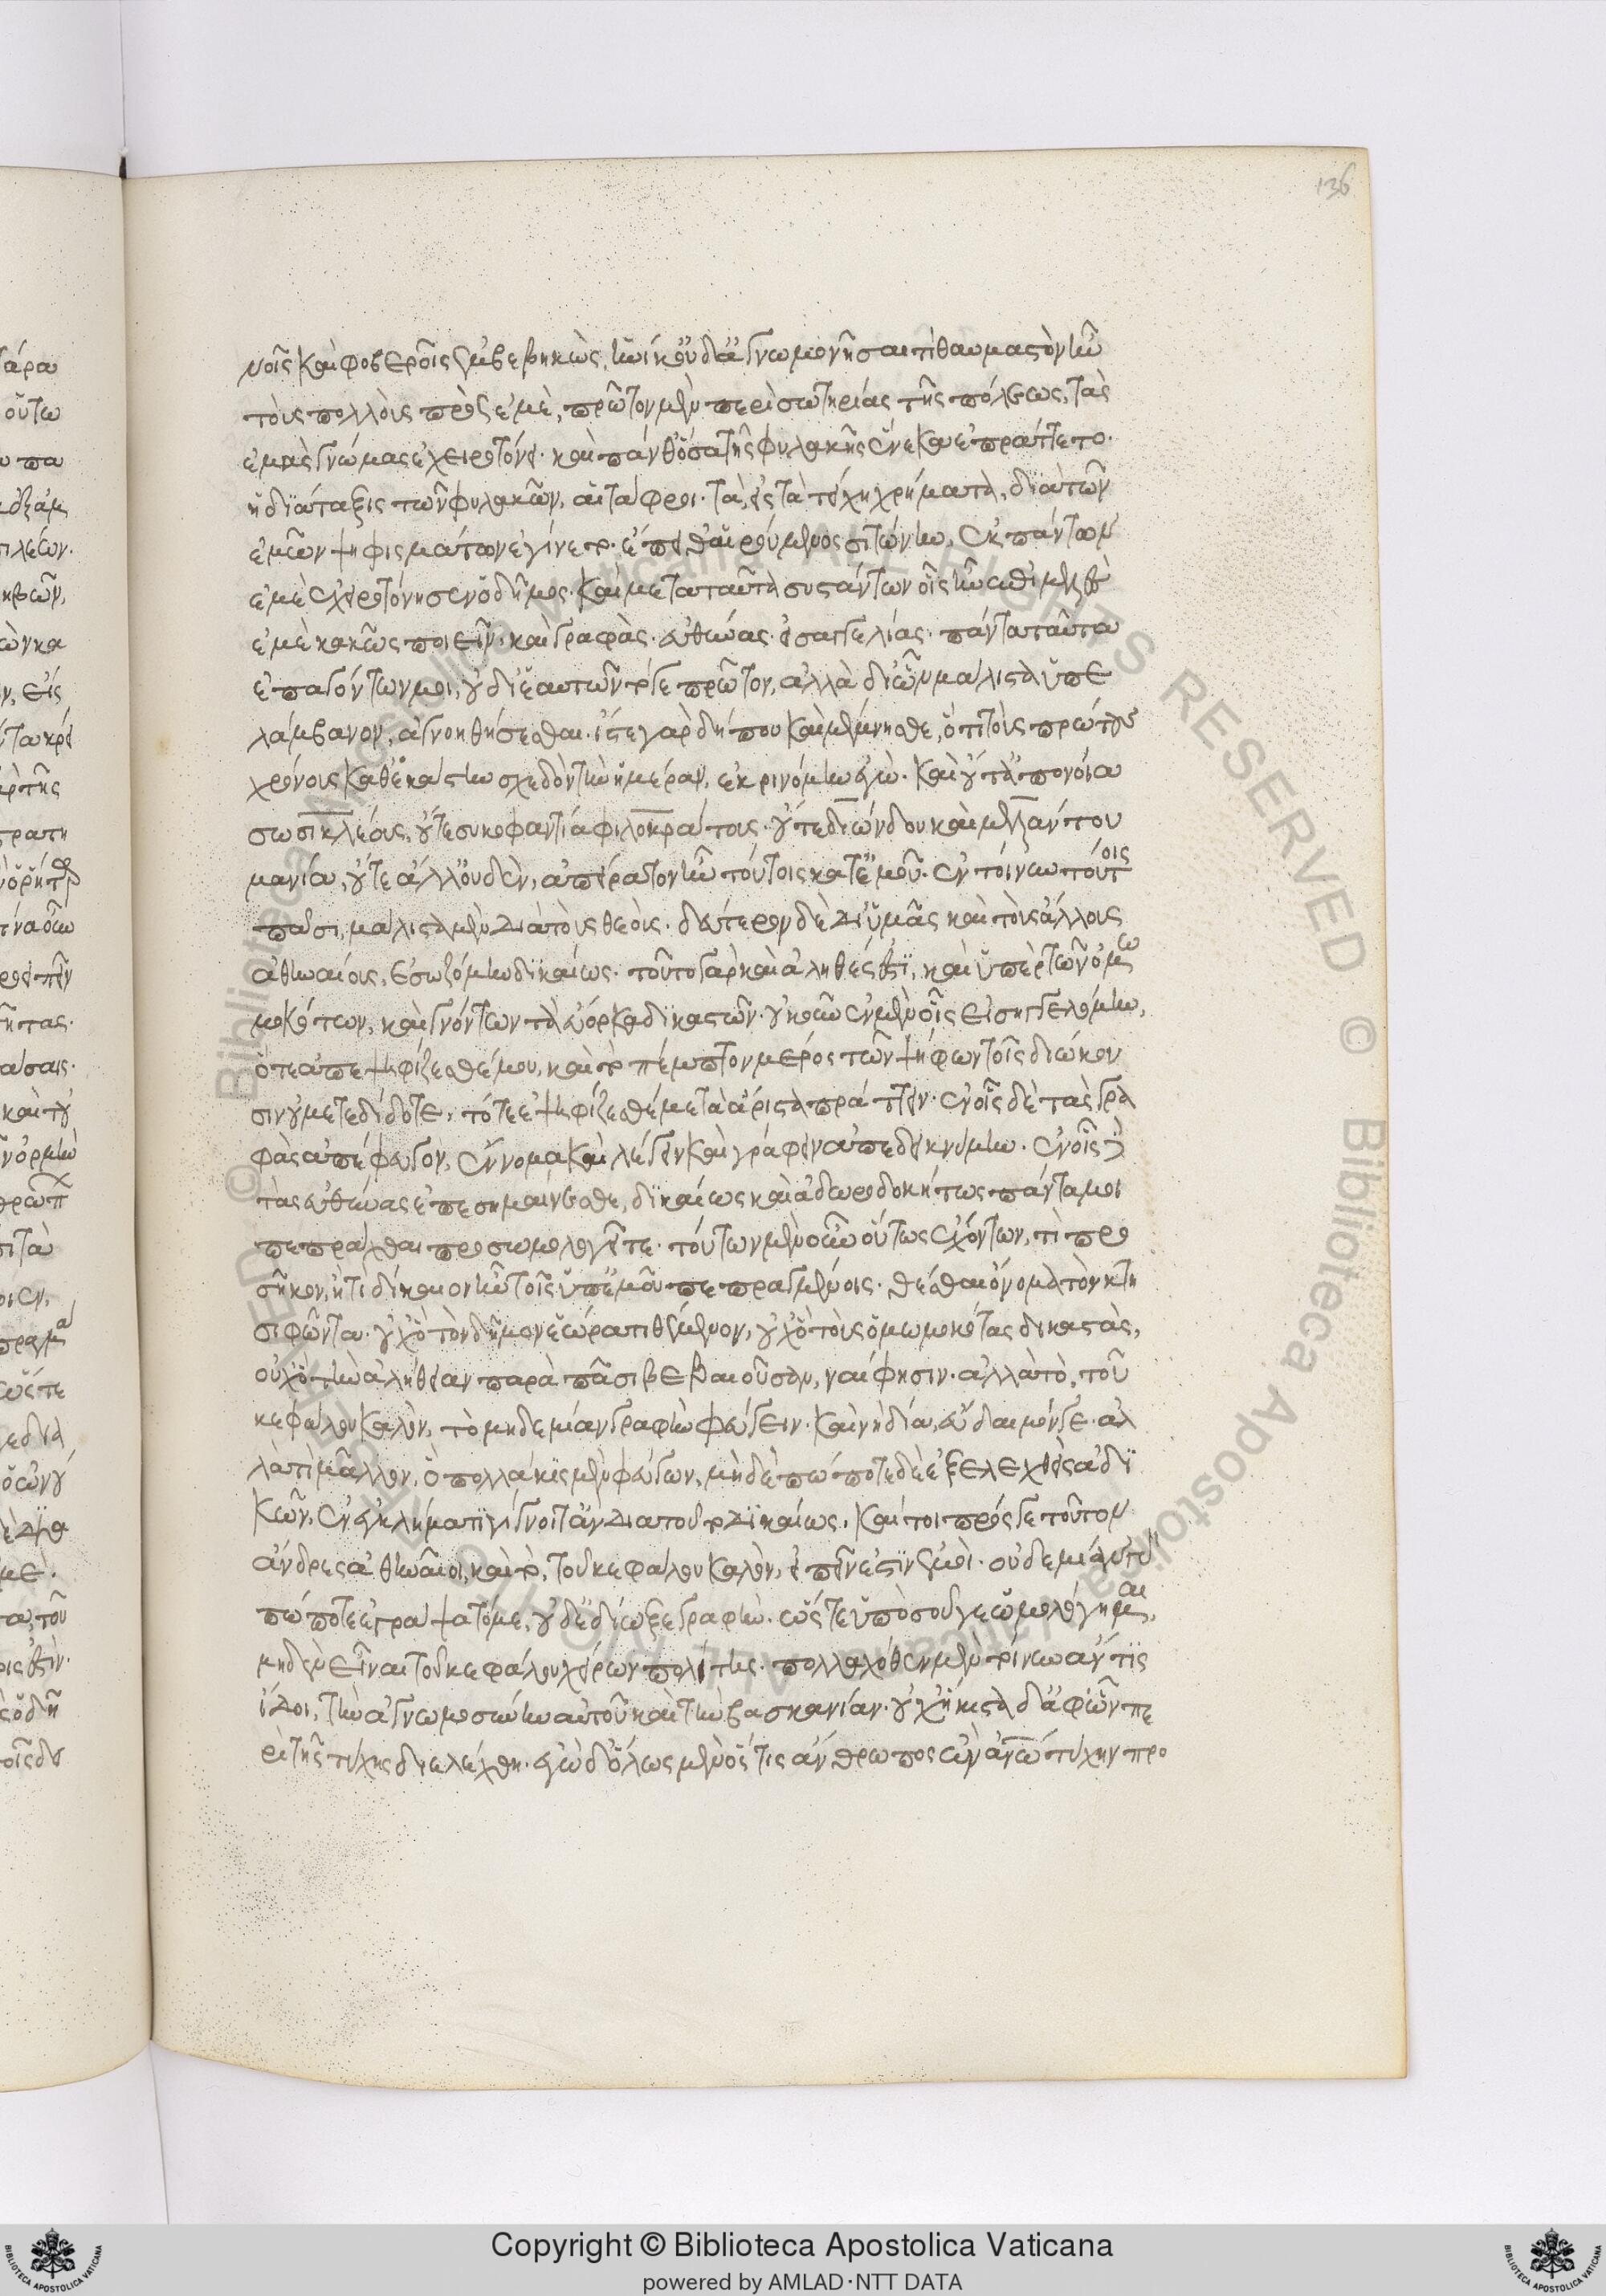 136
νοῖς καὶ φοβεροῖς ἐμβεβηκὼς, ἡνίκ' οὐδ' ἀγνωμονῆσαί τι θαυμαστὸν ἦν
τοὺς πολλοὺς πρὸς ἐμὲ, πρῶτον μὲν περὶ σωτηρίας τῆς πόλεως, τὰς
ἐμὰς γνώμας ἐχειροτόνει. καὶ πάνθ' ὅσα τῆς φυλακῆς ἕνεκα ἐπράττετο.
ἡ διάταξις τῶν φυλακῶν, αἱ τάφροι. τὰ εἰς τὰ τείχη χρήματα, διὰ τῶν
ἐμῶν ψηφισμάτων ἐγίνετο. ἔπειθ' αἱρούμενος σιτώνην, ἐκ πάντων
ἐμὲ ἐχειροτόνησεν ὁ δῆμος. καὶ μετὰ ταῦτα συστάντων οἷς ἦν ἐπιμελὲς
ἐμὲ κακῶς ποιεῖν. καὶ γραφὰς. εὐθύνας. εἰσαγγελίας. πάντα ταῦτα
ἐπαγόντων μοι, οὐ δι' ἑαυτῶν τό γε πρῶτον, ἀλλὰ δι' ὧν μάλισθ' ὑπε
λάμβανον, ἀγνοηθήσεσθαι. ἴστε γὰρ δήπου καὶ μέμνησθε, ὅτι τοὺς πρώτους
χρόνους καθ' ἑκάστην σχεδὸν τὴν ἡμέραν, ἐκρινόμην ἐγώ. καὶ οὔτ' ἀπόνοια
σωσικλέους, οὔτε συκοφαντία φιλοκράτους. οὔτε διώνδου καὶ μελάντου
μανία, οὔτε ἄλλ' οὐδὲν, ἀπείρατον ἦν τούτοις κατ' ἐμοῦ. ἐν τοίνυν τούτοις
πᾶσι, μάλιστα μὲν διὰ τοὺς θεοὺς. δεύτερον δὲ δι' ὑμᾶς καὶ τοὺς ἄλλους
ἀθηναίους, ἐσωζόμην δικαίως. τοῦτο γὰρ καὶ ἀληθές ἐστι, καὶ ὑπὲρ τῶν ὀμω
μοκότων, καὶ γνόντων τὰ εὔορκα δικαστῶν. οὐκοῦν ἐν μὲν οἷς εἰσηγγελόμην,
ὅτε ἀπεψηφίζεσθέ μου, καὶ τὸ πέμπτον μέρος τῶν ψήφων τοῖς διώκου
σιν οὐ μετεδίδοτε, τότε ἐψηφίζεσθέ με τὰ ἄριστα πράττειν. ἐν οἷς δὲ τὰς γρα
φὰς ἀπέφευγον, ἔννομα καὶ λέγειν καὶ γράφειν ἀπεδεικνύμην. ἐν οἷς δὲ
τὰς εὐθύνας ἐπεσημαίνεσθε, δικαίως καὶ ἀδωροδοκήτως πάντα μοι
πεπρᾶχθαι προσωμολογεῖτε. τούτων μὲν οὖν οὕτως ἐχόντων, τί προ
σῆκον, ἢ τί δίκαιον ἦν τοῖς ὑπ' ἐμοῦ πεπραγμένοις. θέσθαι ὄνομα τὸν κτη
σιφῶντα. οὐχ ὃ τὸν δῆμον ἑώρα τιθέμενον, οὐχ ὃ τοὺς ὀμωμοκότας δικαστὰς,
οὐχ ὃ τὴν ἀλήθειαν παρὰ πᾶσι βεβαιοῦσαν, ναί φησιν. ἀλλὰ τὸ, τοῦ
κεφάλου καλὸν, τὸ μηδεμίαν γραφὴν φεύγειν. καὶ νὴ δία, εὔδαιμόν γε. ἀλ
λὰ τί μᾶλλον, ὁ πολλάκις μὲν φεύγων, μηδὲ πώποτε δὲ ἐξελεχθεὶς ἀδι
κῶν, ἐν ἐγκλήματι γίγνοιτ' ἂν διὰ τοῦτο δικαίως, καίτοι πρός γε τοῦτον
ἄνδρες ἀθηναῖοι, καὶ τὸ, τοῦ κεφάλου καλὸν, εἰπεῖν ἐστὶν ἐμοὶ. οὐδεμίαν γὰρ
πώποτε ἐγράψατό με, οὐδ' ἐδίωξε γραφὴν. ὥστε ὑπὸ σοῦ γε ὡμολόγημαι,
μηδὲν εἶναι τοῦ κεφάλου χείρων πολίτης. πολλαχόθεν μὲν τοίνυν ἄν τις
ἴδοι, τὴν ἀγνωμοσύνην αὐτοῦ καὶ τὴν βασκανίαν. οὐχ ἥκιστα δ' ἀφ' ὧν πε
ρὶ τῆς τύχης διελέχθη. ἐγὼ δ' ὅλως μὲν ὅστις ἄνθρωπος ὢν ἀνθρώπῳ τύχην προ
Copyright © Biblioteca Apostolica Vaticana
powered by AMLAD·NTT DATA